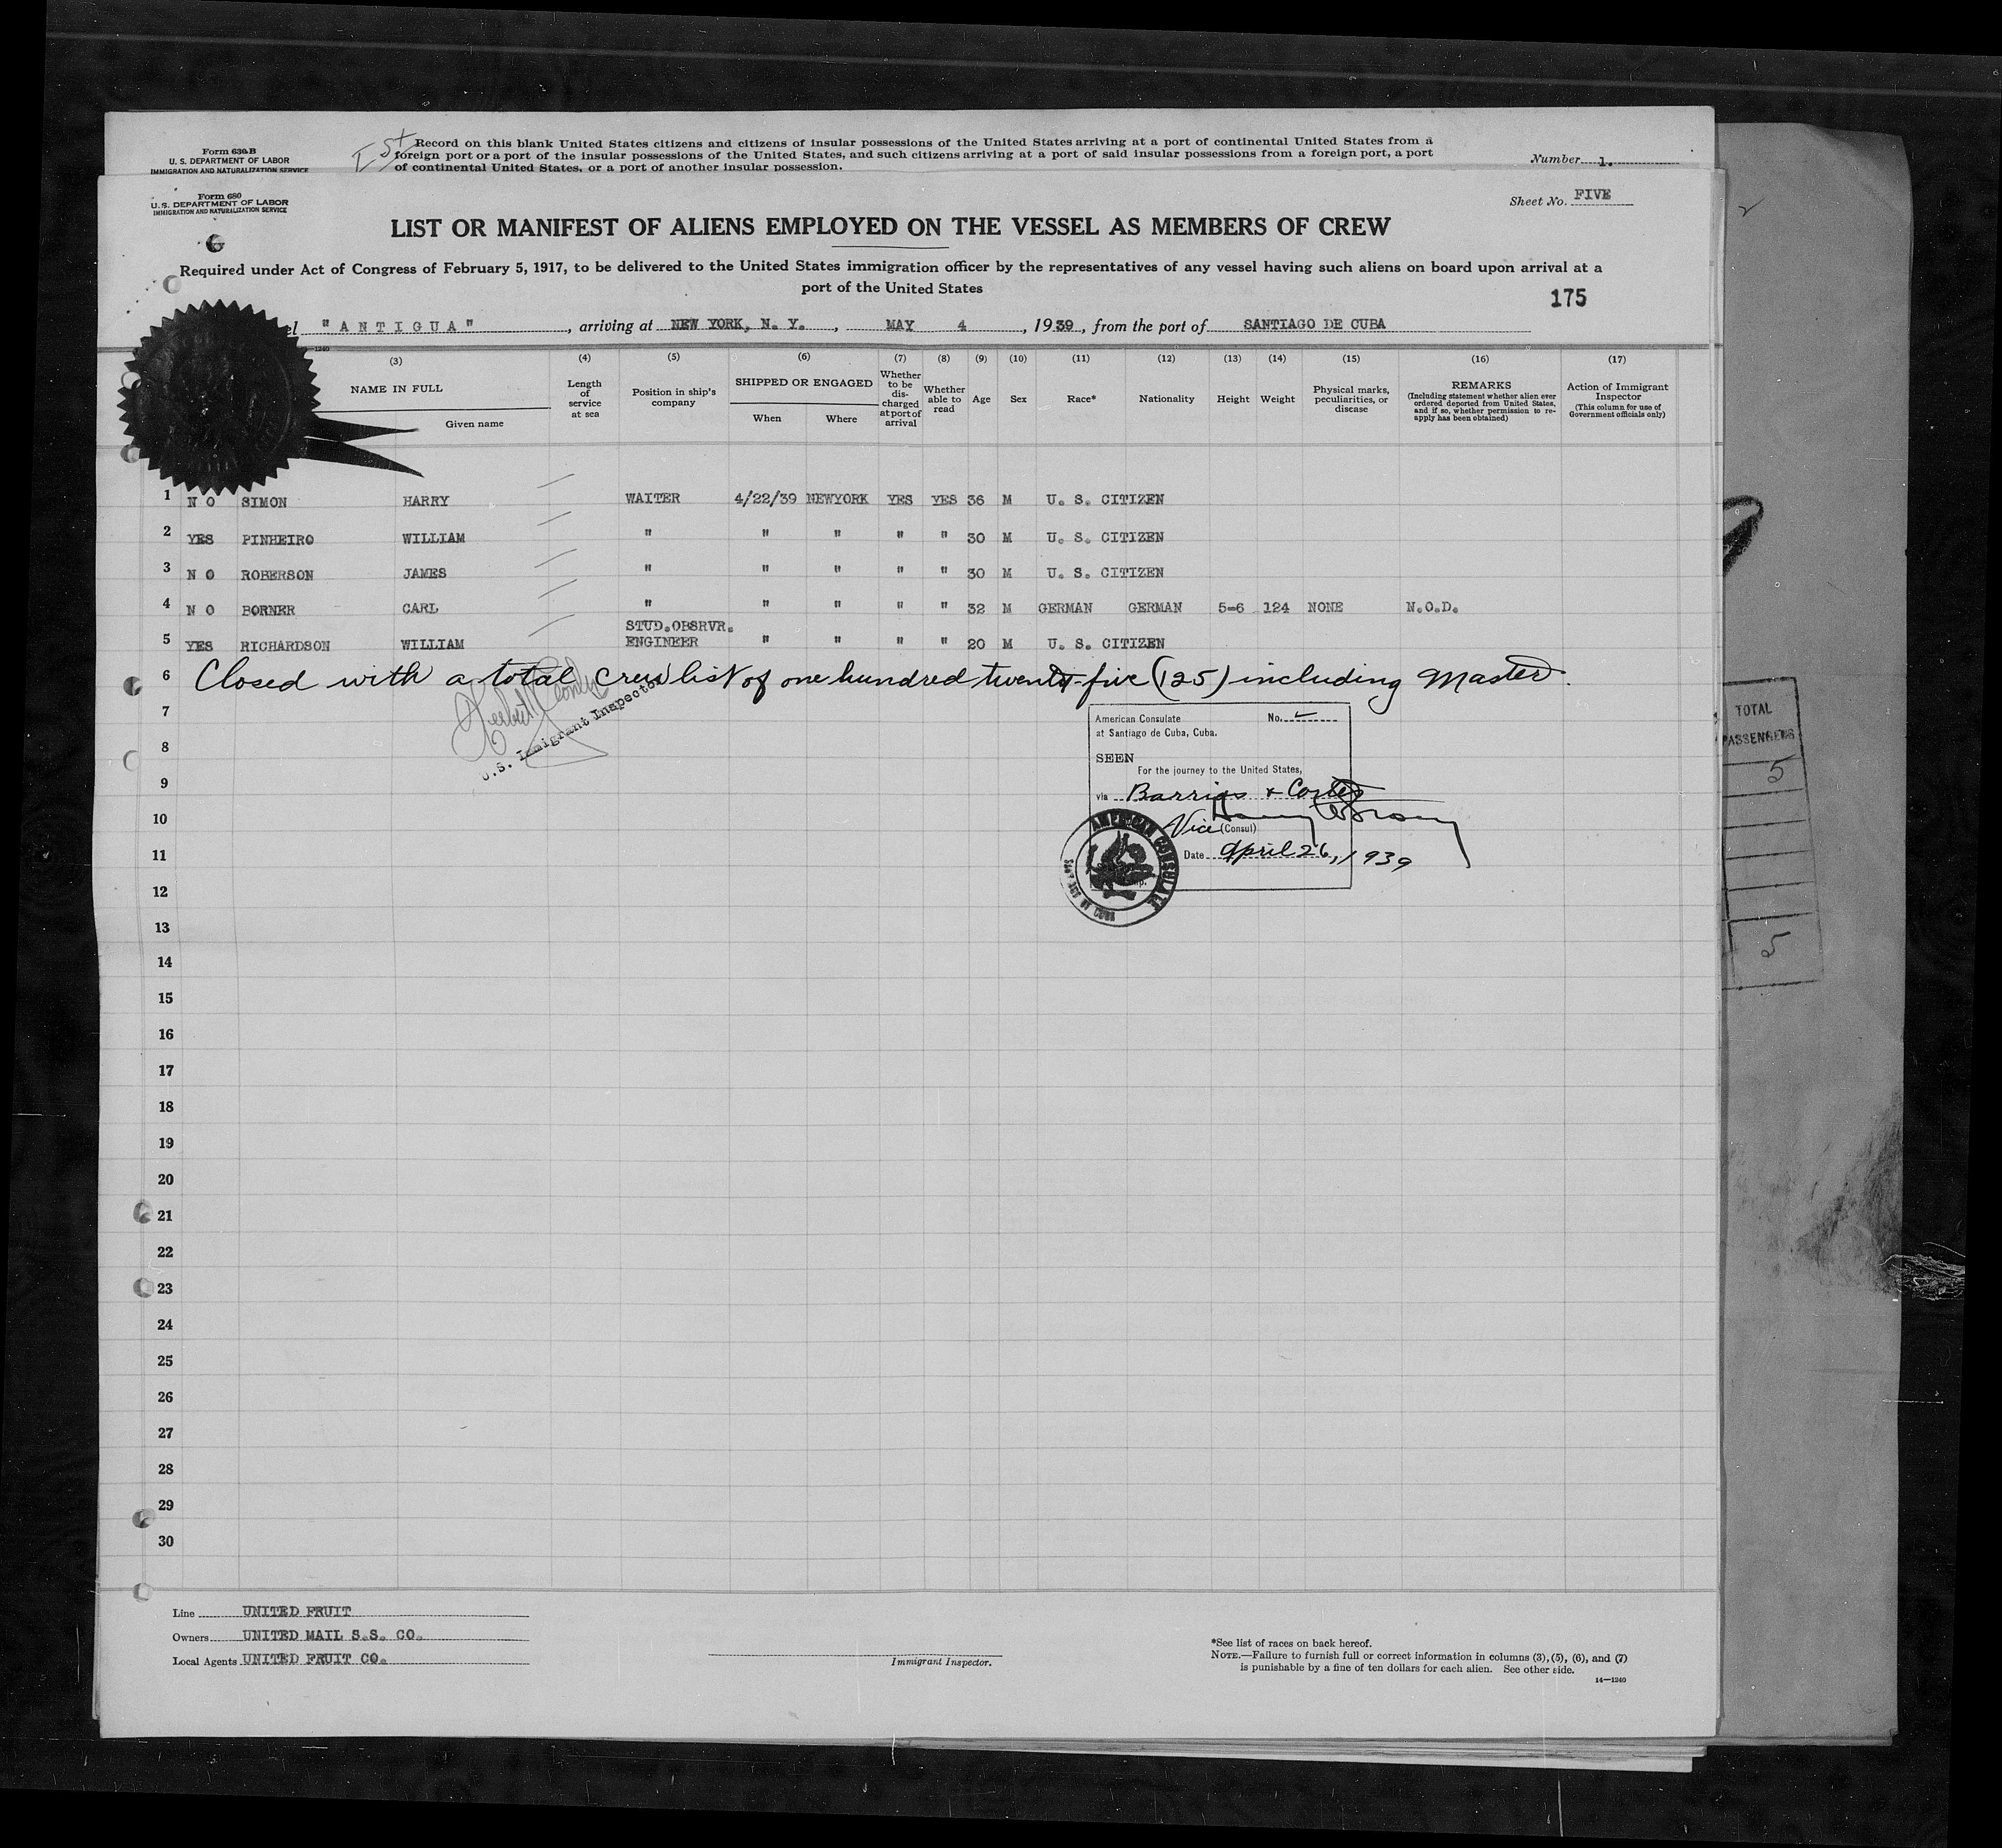 Form 630B
U. S. DEPARTMENT OF LABOR
IMMIGRATION AND NATURALIZATION SERVICE
1st
Record on this blank United States citizens and citizens of insular possessions of the United States arriving at a port of continental United States from a
foreign port or a port of the insular possessions of the United States, and such citizens arriving at a port of said insular possessions from a foreign port, a port
of continental United States, or a port of another insular possession.
Number 1.
Form 680
U. S. DEPARTMENT OF LABOR
IMMIGRATION AND NATURALIZATION SERVICE
Sheet No. FIVE
LIST OR MANIFEST OF ALIENS EMPLOYED ON THE VESSEL AS MEMBERS OF CREW
Required under Act of Congress of February 5, 1917, to be delivered to the United States immigration officer by the representatives of any vessel having such aliens on board upon arrival at a
port of the United States
175
el "ANTIGUA", arriving at NEW YORK, N. Y., MAY 4, 1939, from the port of SANTIAGO DE CUBA
(3) (4) (5) (6) (7) (8) (9) (10) (11) (12) (13) (14) (15) (16) (17)
NAME IN FULL
Given name
Length of service at sea
Position in ship's company
SHIPPED OR ENGAGED
When Where
Whether to be discharged at port of arrival
Whether able to read
Age Sex Race* Nationality Height Weight
Physical marks, peculiarities, or disease
REMARKS
(Including statement whether alien ever ordered deported from United States, and if so, whether permission to re-apply has been obtained)
Action of Immigrant Inspector
(This column for use of Government officials only)
1 NO SIMON HARRY WAITER 4/22/39 NEWYORK YES YES 36 M U. S. CITIZEN
2 YES PINHEIRO WILLIAM " " " " " 30 M U. S. CITIZEN
3 NO ROBERSON JAMES " " " " " 30 M U. S. CITIZEN
4 NO BORNER CARL " " " " " 32 M GERMAN GERMAN 5-6 124 NONE N.O.D.
STUD.OBSRVR.
5 YES RICHARDSON WILLIAM ENGINEER " " " " 20 M U. S. CITIZEN
6 Closed with a total crew list of one hundred twenty-five (125) including Master.
U.S. Immigrant Inspector
7
8
9
10
11
12
13
14
15
16
17
18
19
20
21
22
23
24
25
26
27
28
29
30
American Consulate No.
at Santiago de Cuba, Cuba.
SEEN
For the journey to the United States,
via Barrios & Cortes
Vice (Consul)
Date April 26, 1939
AMERICAN CONSULATE
TOTAL
PASSENGERS
5
5
Line UNITED FRUIT
Owners UNITED MAIL S.S. CO.
Local Agents UNITED FRUIT CO.
Immigrant Inspector.
*See list of races on back hereof.
NOTE.—Failure to furnish full or correct information in columns (3), (5), (6), and (7)
is punishable by a fine of ten dollars for each alien. See other side.
14—1240